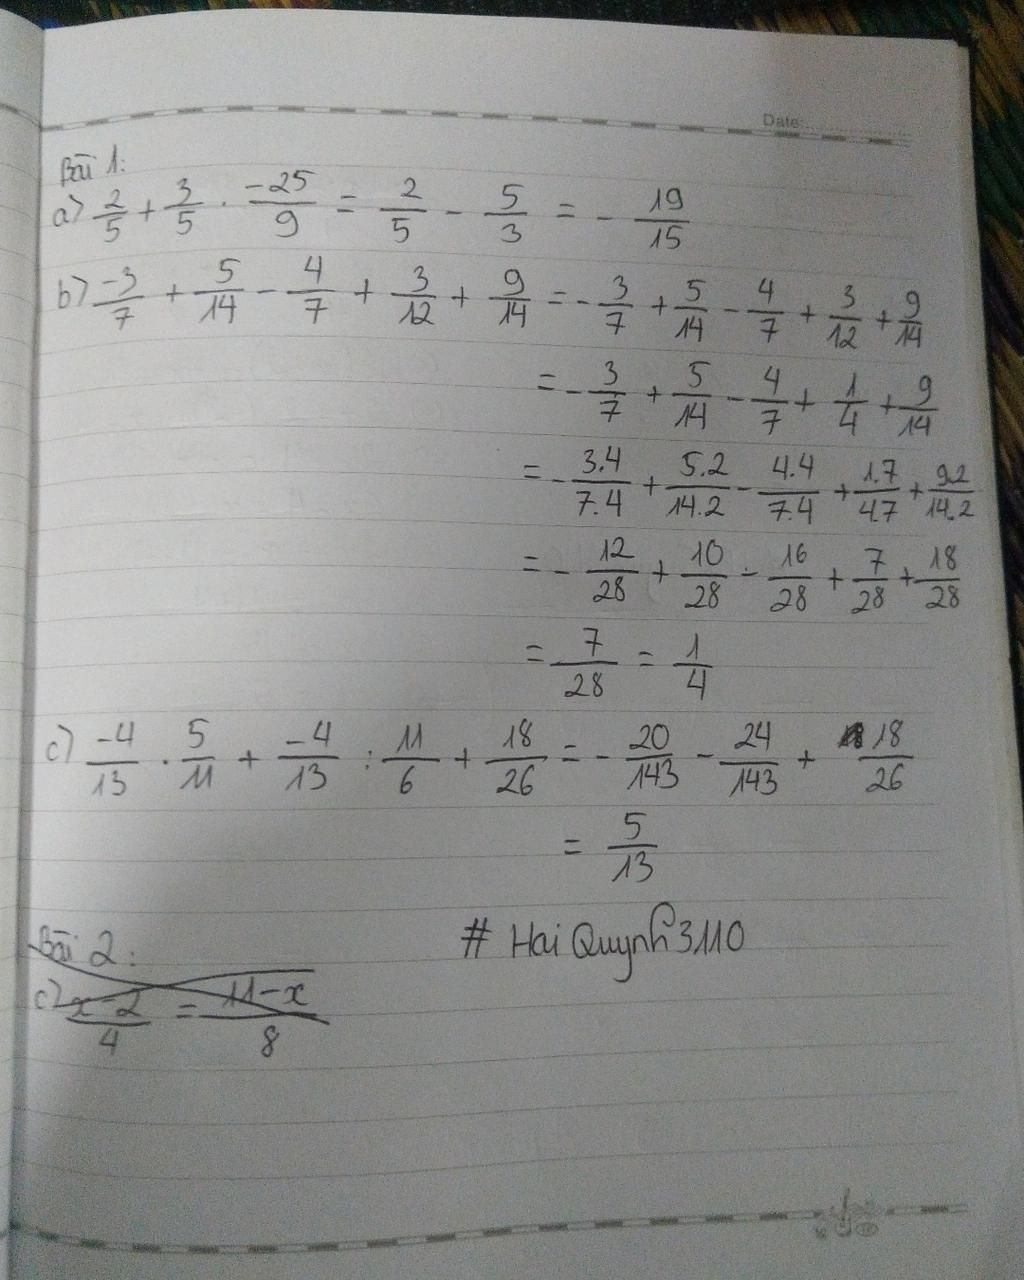 Date:
Bài 1:
a) 2/5 + 3/5 . -25/9 = 2/5 - 5/3 = - 19/15
b) -3/7 + 5/14 - 4/7 + 3/12 + 9/14 = - 3/7 + 5/14 - 4/7 + 3/12 + 9/14
= - 3/7 + 5/14 - 4/7 + 1/4 + 9/14
= - 3.4/7.4 + 5.2/14.2 - 4.4/7.4 + 1.7/4.7 + 9.2/14.2
= - 12/28 + 10/28 - 16/28 + 7/28 + 18/28
= 7/28 = 1/4
c) -4/13 . 5/11 + -4/13 : 11/6 + 18/26 = - 20/143 - 24/143 + 18/26
= 5/13
# Hai Quynh 3110
Bài 2:
c) x-2/4 = 11-x/8